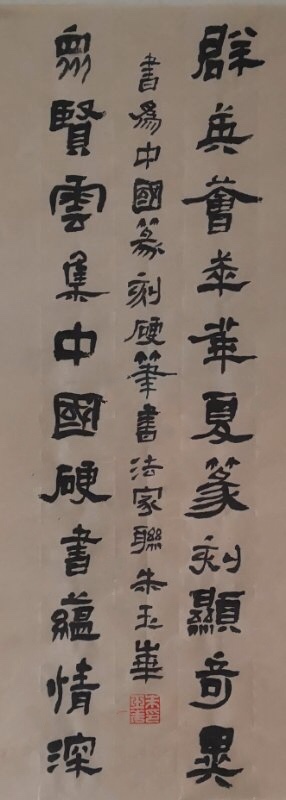 群英薈萃華夏篆刻顯奇異
眾賢雲集中國硬書蘊情深
書為中國篆刻硬筆書法家聯朱玉華